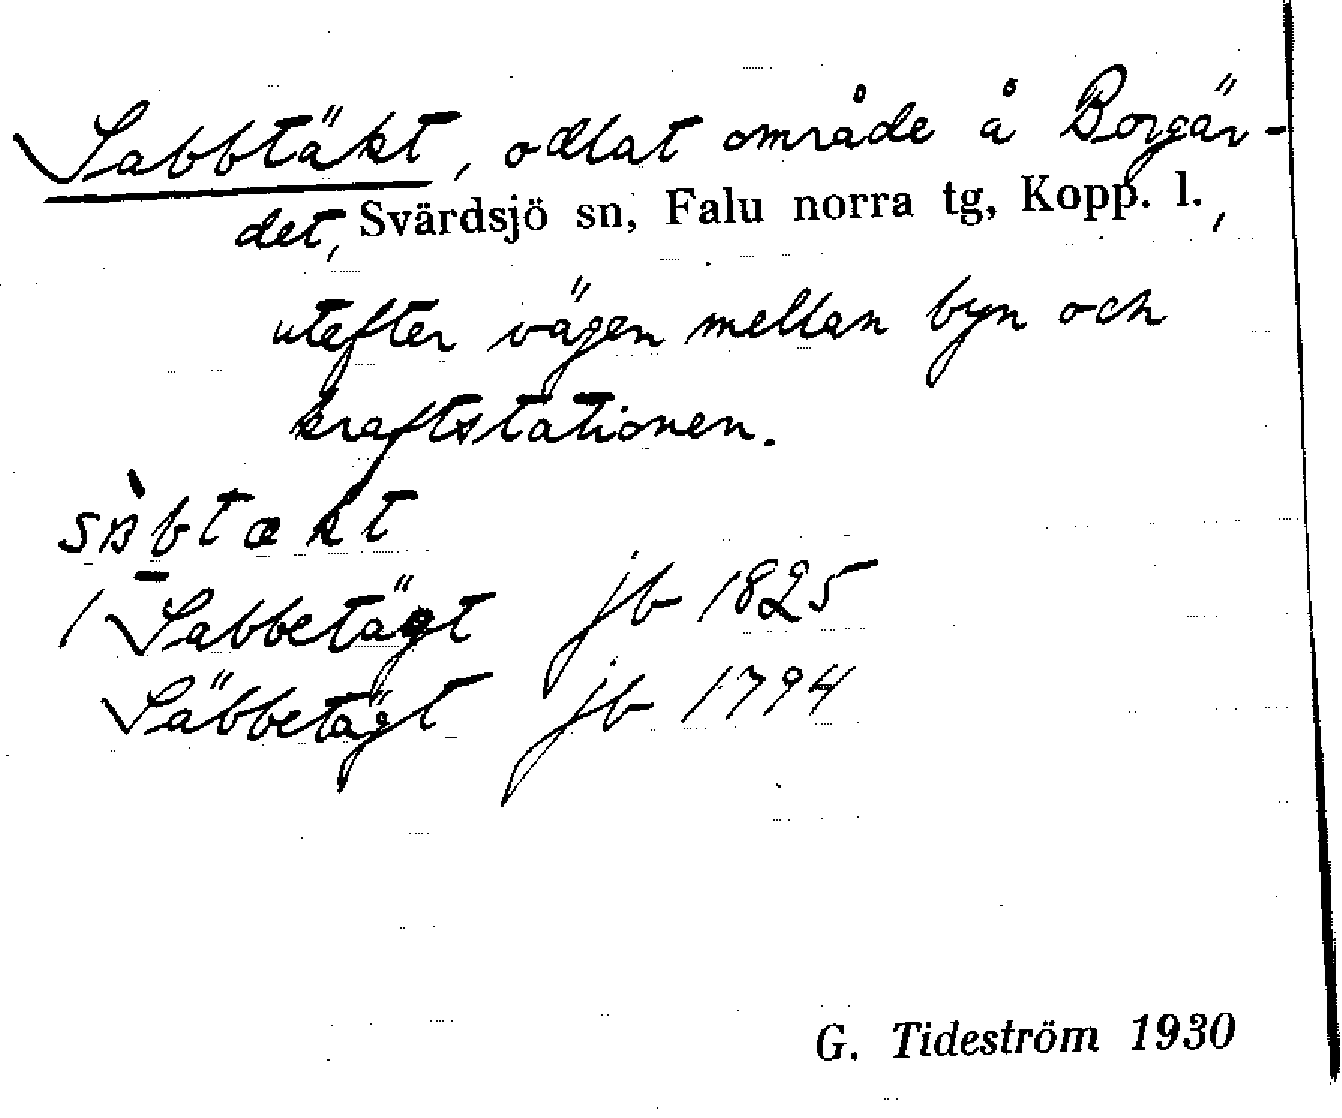 Sabbtäkt, odlat område å Borgär-
det, Svärdsjö sn, Falu norra tg, Kopp. l.,
utefter vägen mellan byn och
kraftstationen.
Sabbetägt jb 1825
Säbbetägt jb 1794
G. Tideström 1930